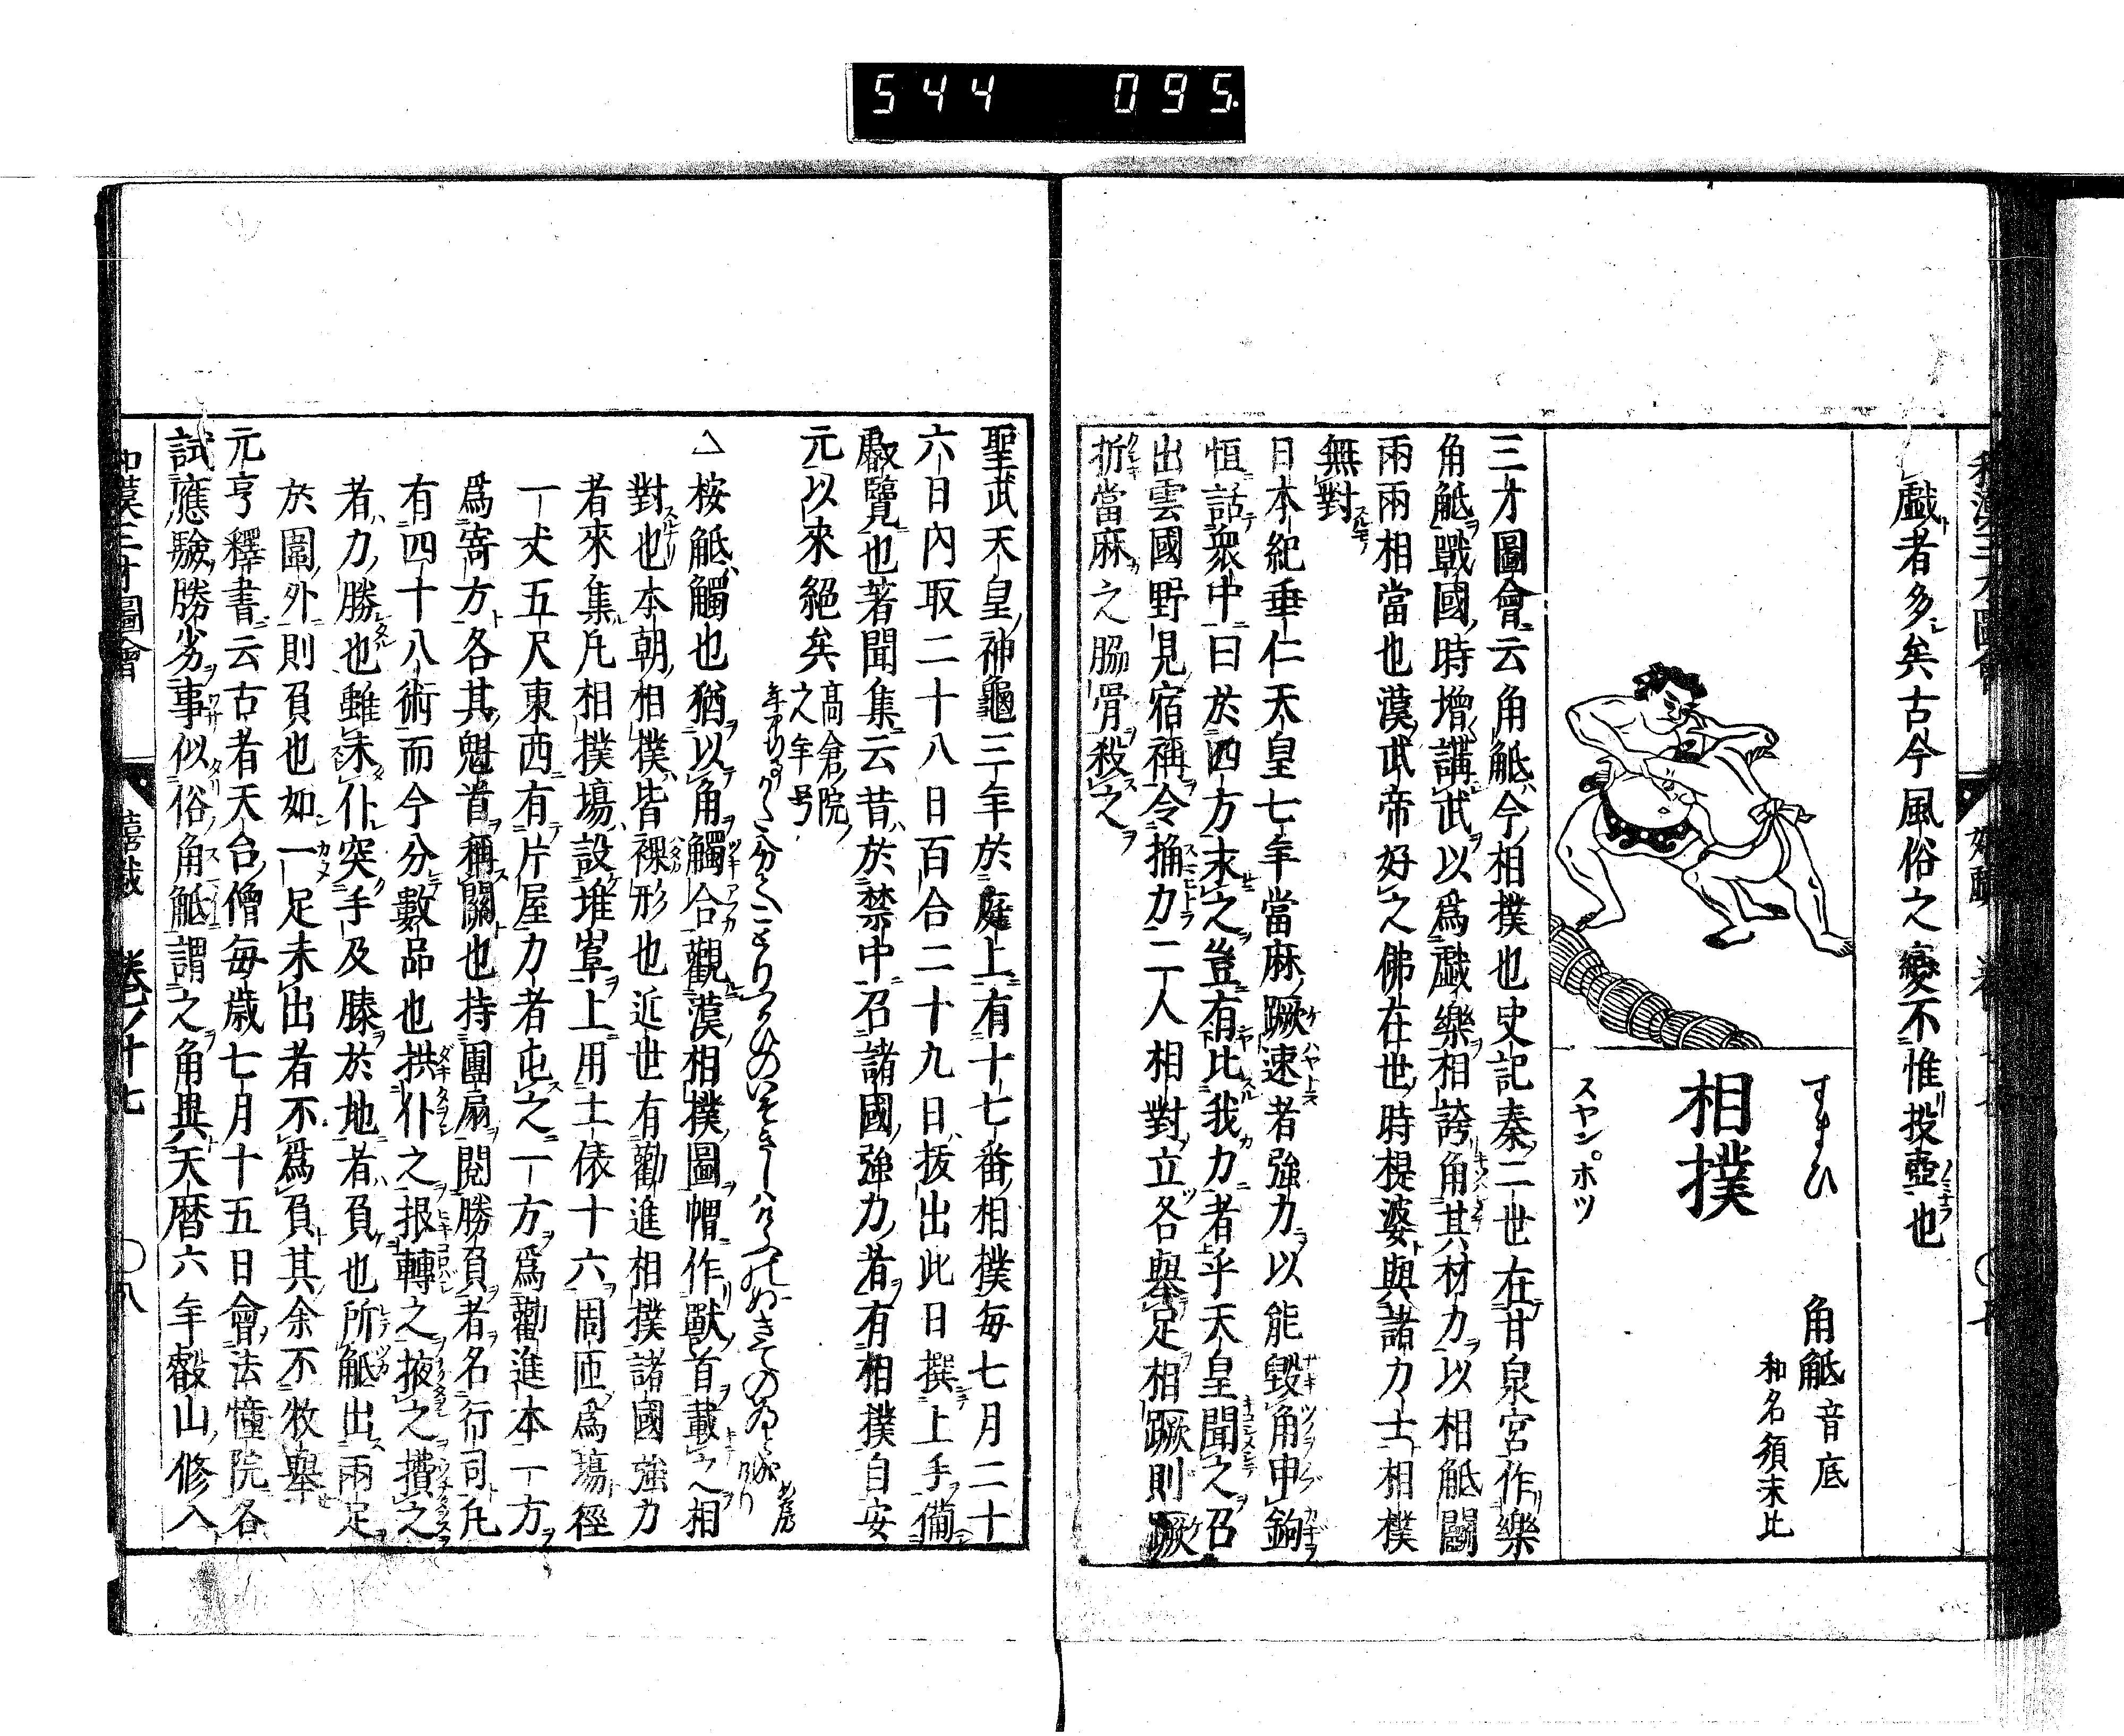 544 095.
戲者多矣古今風俗之變不惟投壺也
相撲
すまひ
スヤン。ホツ
角觝音底
和名須末比
三才圖會云角觝今相撲也史記秦二世在甘泉宮作樂
角觝戰國時增講武以爲戲樂相誇角其材力以相觝鬭
兩兩相當也漢武帝好之佛在世時提婆與諸力士相撲
無對
日本紀垂仁天皇七年當麻蹶速者強力以能毀角申鉤
恒話衆中曰於四方求之豈有比我力者乎天皇聞之召
出雲國野見宿禰令捔力二人相對立各舉足相蹶則蹶
折當麻之脇骨殺之
聖武天皇神龜三年於庭上有十七番相撲毎七月二十
六日內取二十八日百合二十九日拔出此日撰上手備
叡覽也著聞集云昔於禁中召諸國強力者有相撲自安
元以來絕矣高倉院之年号
△按觝觸也猶以角觸合觀漢相撲圖帽作獸首載之相
對也本朝相撲皆裸形也近世有勸進相撲諸國強力
者來集凡相撲塲設堆埠上用土俵十六周匝爲塲徑
一丈五尺東西有片屋力者屯之一方爲勸進本一方
爲寄方各其魁首稱關也持團扇閱勝負者名行司凡
有四十八術而今分數品也拱仆之拫轉之掖之攢之
者力勝也雖未仆突手及膝於地者負也所觝出兩足
於圍外則負也如一足未出者不爲負其余不牧舉
元亨釋書云古者天台僧毎歳七月十五日會法憧院各
試應驗勝劣事似俗角觝謂之角異天曆六年叡山修入
和漢三才圖會 嬉戲 卷ノ十七 〇八